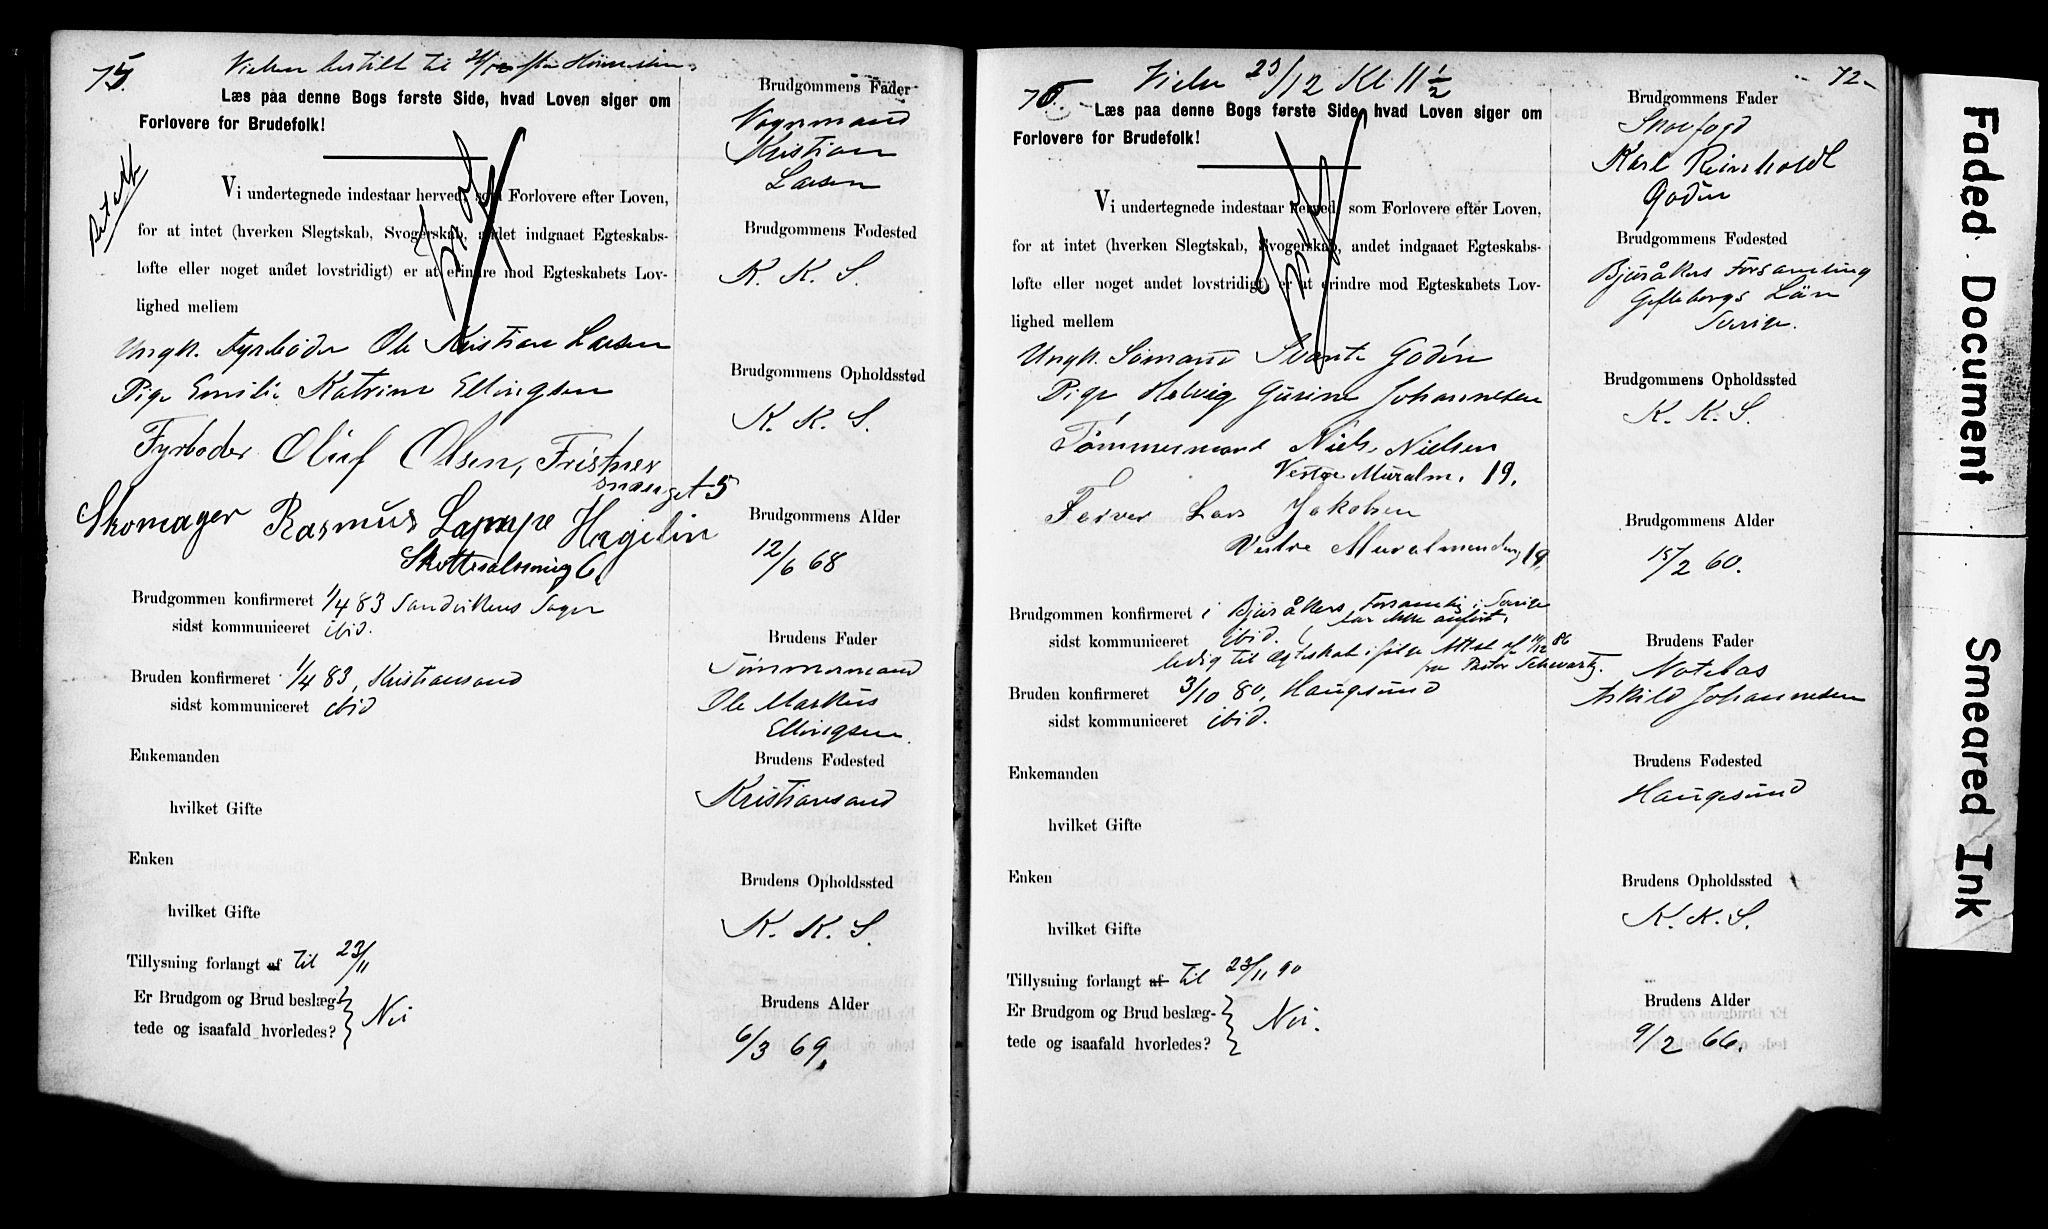 75.
Vielsen bestilt til
Læs paa denne Bogs første Side, hvad Loven siger om
Forlovere for Brudefolk!
Vi undertegnede indestaar herved, som Forlovere efter Loven,
for at intet (hverken Slegtskab, Svogerskab, andet indgaaet Egteskabs-
løfte eller noget andet lovstridigt) er at erindre mod Egteskabets Lov-
lighed mellem
Ungk. Fyrbøder Ole Kristian Larsen
Pige Emilie Katrine Ellingsen
Fyrbøder Oluf Olsen,
5
Skomager Rasmus Lampe Hagelin
6
Brudgommen konfirmeret 1/4 83 Sandvikens Sogn
sidst kommuniceret ibid.
Bruden konfirmeret 1/4 83, Kristiansand
sidst kommuniceret ibid
Enkemanden
hvilket Gifte
Enken
hvilket Gifte
Tillysning forlangt af til 23/11
Er Brudgom og Brud beslæg-
tede og isaafald hvorledes? } Nei
Brudgommens Fader
Vognmand
Kristian
Larsen
Brudgommens Fødested
K. K. S.
Brudgommens Opholdssted
K. K. S.
Brudgommens Alder
12/6 68
Brudens Fader
Tømmermand
Ole Markus
Ellingsen.
Brudens Fødested
Kristiansand
Brudens Opholdssted
K. K. S.
Brudens Alder
6/3 69.
72.
76.
Vielse 23/12 Kl 11 1/2
Læs paa denne Bogs første Side, hvad Loven siger om
Forlovere for Brudefolk!
Vi undertegnede indestaar herved, som Forlovere efter Loven,
for at intet (hverken Slegtskab, Svogerskab, andet indgaaet Egteskabs-
løfte eller noget andet lovstridigt) er at erindre mod Egteskabets Lov-
lighed mellem
Ungk. Sømand Svante Godén
Pige Helvig Gurine Johannesen
Tømmermand Niels Nielsen
Vestre Muralm. 19.
Farver Lars Jakobsen
Vestre Muralmendng 19.
Brudgommen konfirmeret i Bjuråkers Forsamling i Sverige
sidst kommuniceret ibid.
ledig til Ægteskab ifølge Attest af 14/12 86
fra Pastor Schwartz.
Bruden konfirmeret 3/10 80, Haugesund
sidst kommuniceret ibid.
Enkemanden
hvilket Gifte
Enken
hvilket Gifte
Tillysning forlangt af til 23/11 90
Er Brudgom og Brud beslæg-
tede og isaafald hvorledes? } Nei.
Brudgommens Fader
Skovfogd
Karl Reinholdt
Godén
Brudgommens Fødested
Bjuråkers Forsamling
Gefleborgs Län
Sverige.
Brudgommens Opholdssted
K. K. S.
Brudgommens Alder
15/2 60.
Brudens Fader
Notebas
Askild Johannesen
Brudens Fødested
Haugesund
Brudens Opholdssted
K. K. S.
Brudens Alder
9/2 66.
Faded Document
Smeared Ink